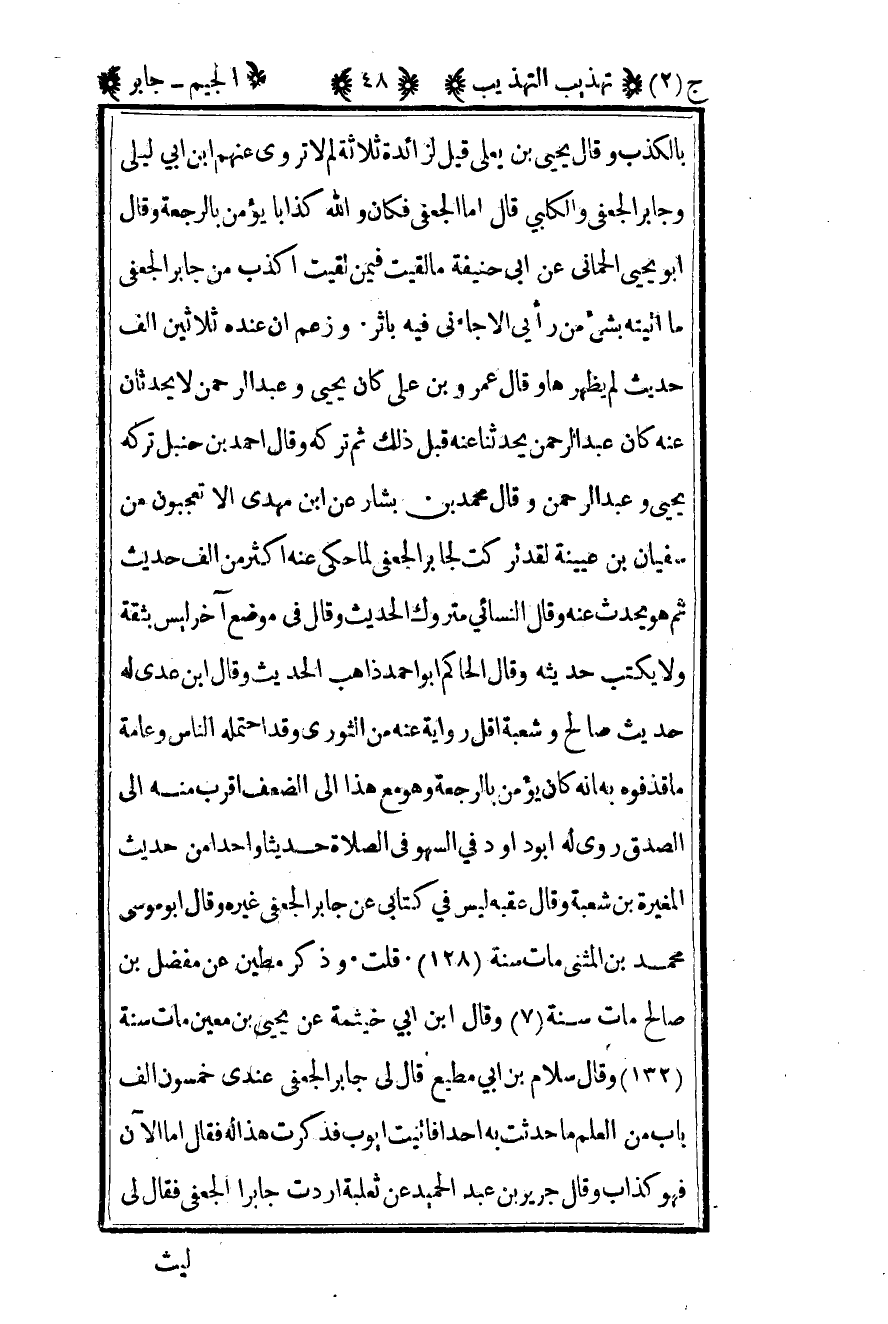 ج (٢) تهذيب التهذيب ٤٨ الجيم - جابر
بالكذب وقال يحيى بن يعلى قيل لزائدة ثلاثة لم لا تروى عنهم ابن ابي ليلى
وجابر الجعفى والكلبي قال اما الجعفى فكان والله كذابا يؤمن بالرجعة وقال
ابو يحيى الحمانى عن ابى حنيفة ما لقيت فيمن لقيت اكذب من جابر الجعفى
ما اتيته بشئ من رأيى الا جاءنى فيه باثر · وزعم ان عنده ثلاثين الف
حديث لم يظهرها وقال عمرو بن على كان يحيى وعبد الرحمن لا يحدثان
عنه كان عبد الرحمن يحدثنا عنه قبل ذلك ثم تركه وقال احمد بن حنبل تركه
يحيى وعبد الرحمن وقال محمد بن بشار عن ابن مهدى الا تعجبون من
سفيان بن عيينة لقد تركت لجابر الجعفى لما حكى عنه اكثر من الف حديث
ثم هو يحدث عنه وقال النسائي متروك الحديث وقال فى موضع آخر ليس بثقة
ولا يكتب حديثه وقال الحاكم ابو احمد ذاهب الحديث وقال ابن عدى له
حديث صالح وشعبة اقل رواية عنه من الثورى وقد احتمله الناس وعامة
ما قذفوه به انه كان يؤمن بالرجعة وهو مع هذا الى الضعف اقرب منه الى
الصدق روى له ابو داود في السهو فى الصلاة حديثا واحدا من حديث
المغيرة بن شعبة وقال عقبه ليس في كتابى عن جابر الجعفى غيره وقال ابو موسى
محمد بن المثنى مات سنة (١٢٨) · قلت · وذكر مطين عن مفضل بن
صالح مات سنة (٧) وقال ابن ابي خيثمة عن يحيى بن معين مات سنة
(١٣٢) وقال سلام بن ابي مطيع قال لى جابر الجعفى عندى خمسون الف
باب من العلم ما حدثت به احدا فاتيت ايوب فذكرت هذا له فقال اما الآن
فهو كذاب وقال جرير بن عبد الحميد عن ثعلبة اردت جابرا الجعفى فقال لى
ليث